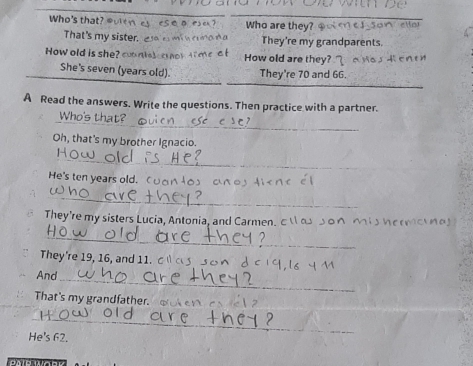 Who and How Old with be
Who's that? quien es ese o esa?
Who are they? quienes son ellos
That's my sister. esa es mi hermana
They're my grandparents.
How old is she? cuantos años tiene el
How old are they? años tienen
She's seven (years old).
They're 70 and 66.
A Read the answers. Write the questions. Then practice with a partner.
Who's that? quien ese ese?
Oh, that's my brother Ignacio.
How old is He?
He's ten years old. cuantos anos tiene él
who are they?
They're my sisters Lucia, Antonia, and Carmen. ellas son mis hermanas
How old are they?
They're 19, 16, and 11. ellas son de 19, 16 y 11
And who are they?
That's my grandfather. quien es él?
How old are they?
He's 62.
PAIR WORK